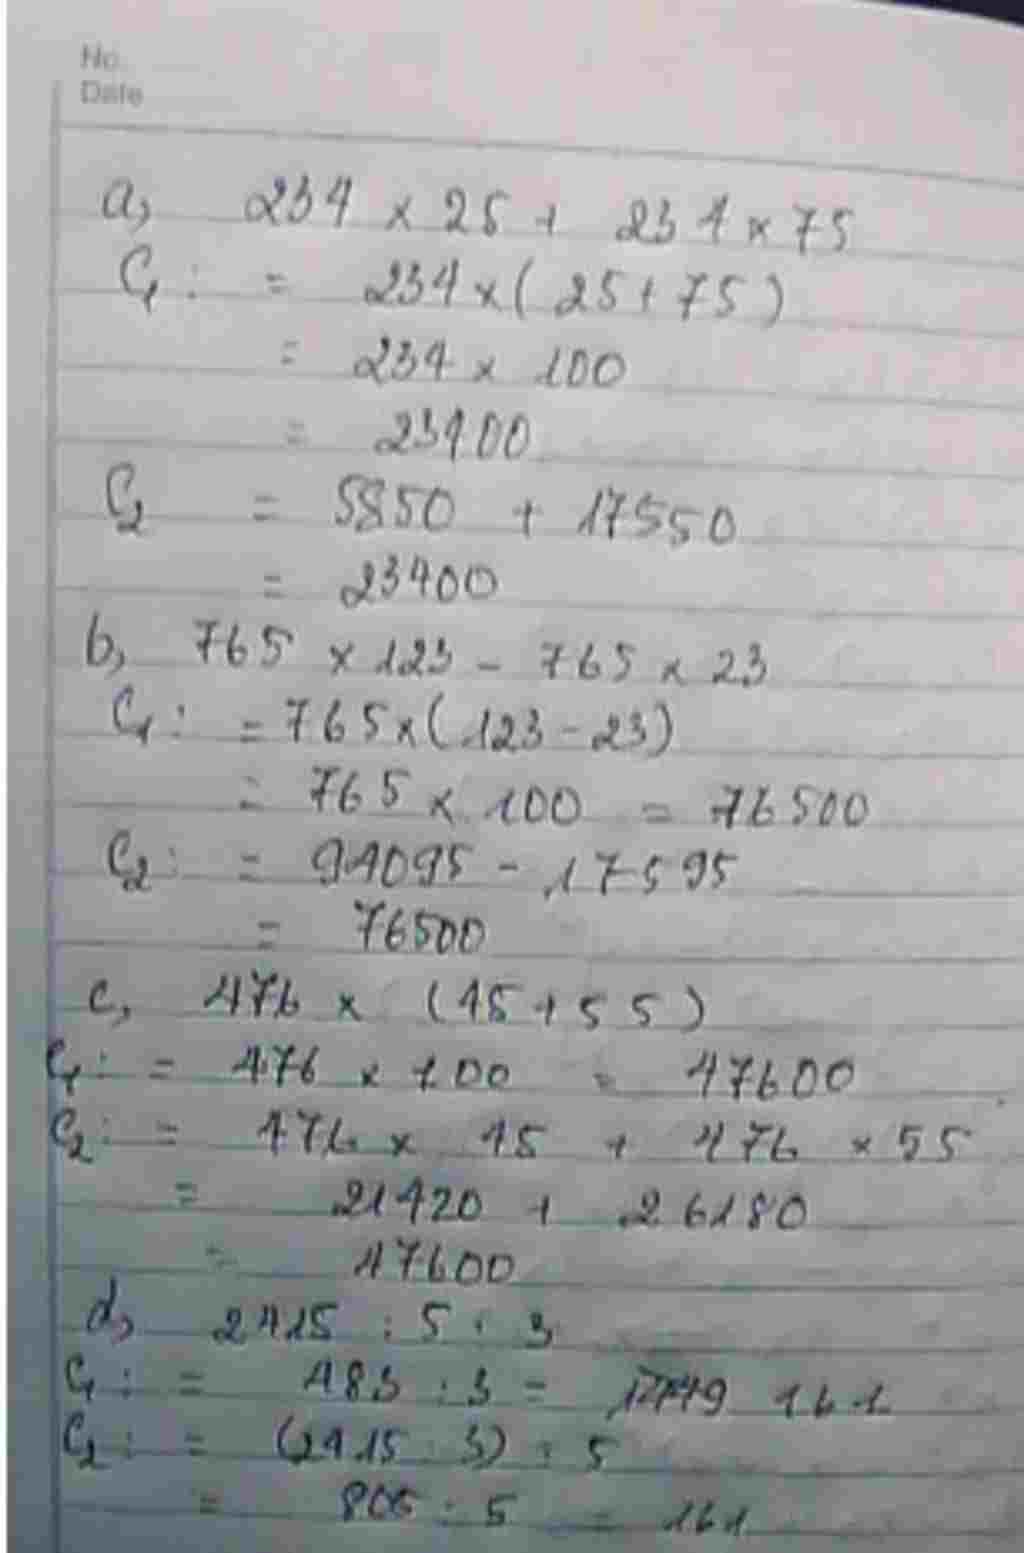 No.
Date
a, 234 × 25 + 234 × 75
C1: = 234 × (25 + 75)
= 234 × 100
= 23400
C2 = 5850 + 17550
= 23400
b, 765 × 123 - 765 × 23
C1: = 765 × (123 - 23)
= 765 × 100 = 76500
C2: = 94095 - 17595
= 76500
c, 476 × (45 + 55)
C1: = 476 × 100 = 47600
C2: = 476 × 45 + 476 × 55
= 21420 + 26180
= 47600
d, 2415 : 5 : 3
C1: = 483 : 3 = 161
C2: = (2415 : 3) : 5
= 805 : 5 = 161